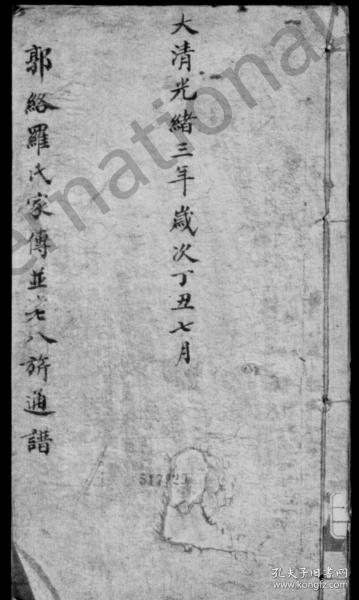 大清光緒三年歲次丁丑七月
郭絡羅氏家傳並老八旂通譜
ernational
517729
孔夫子旧书网